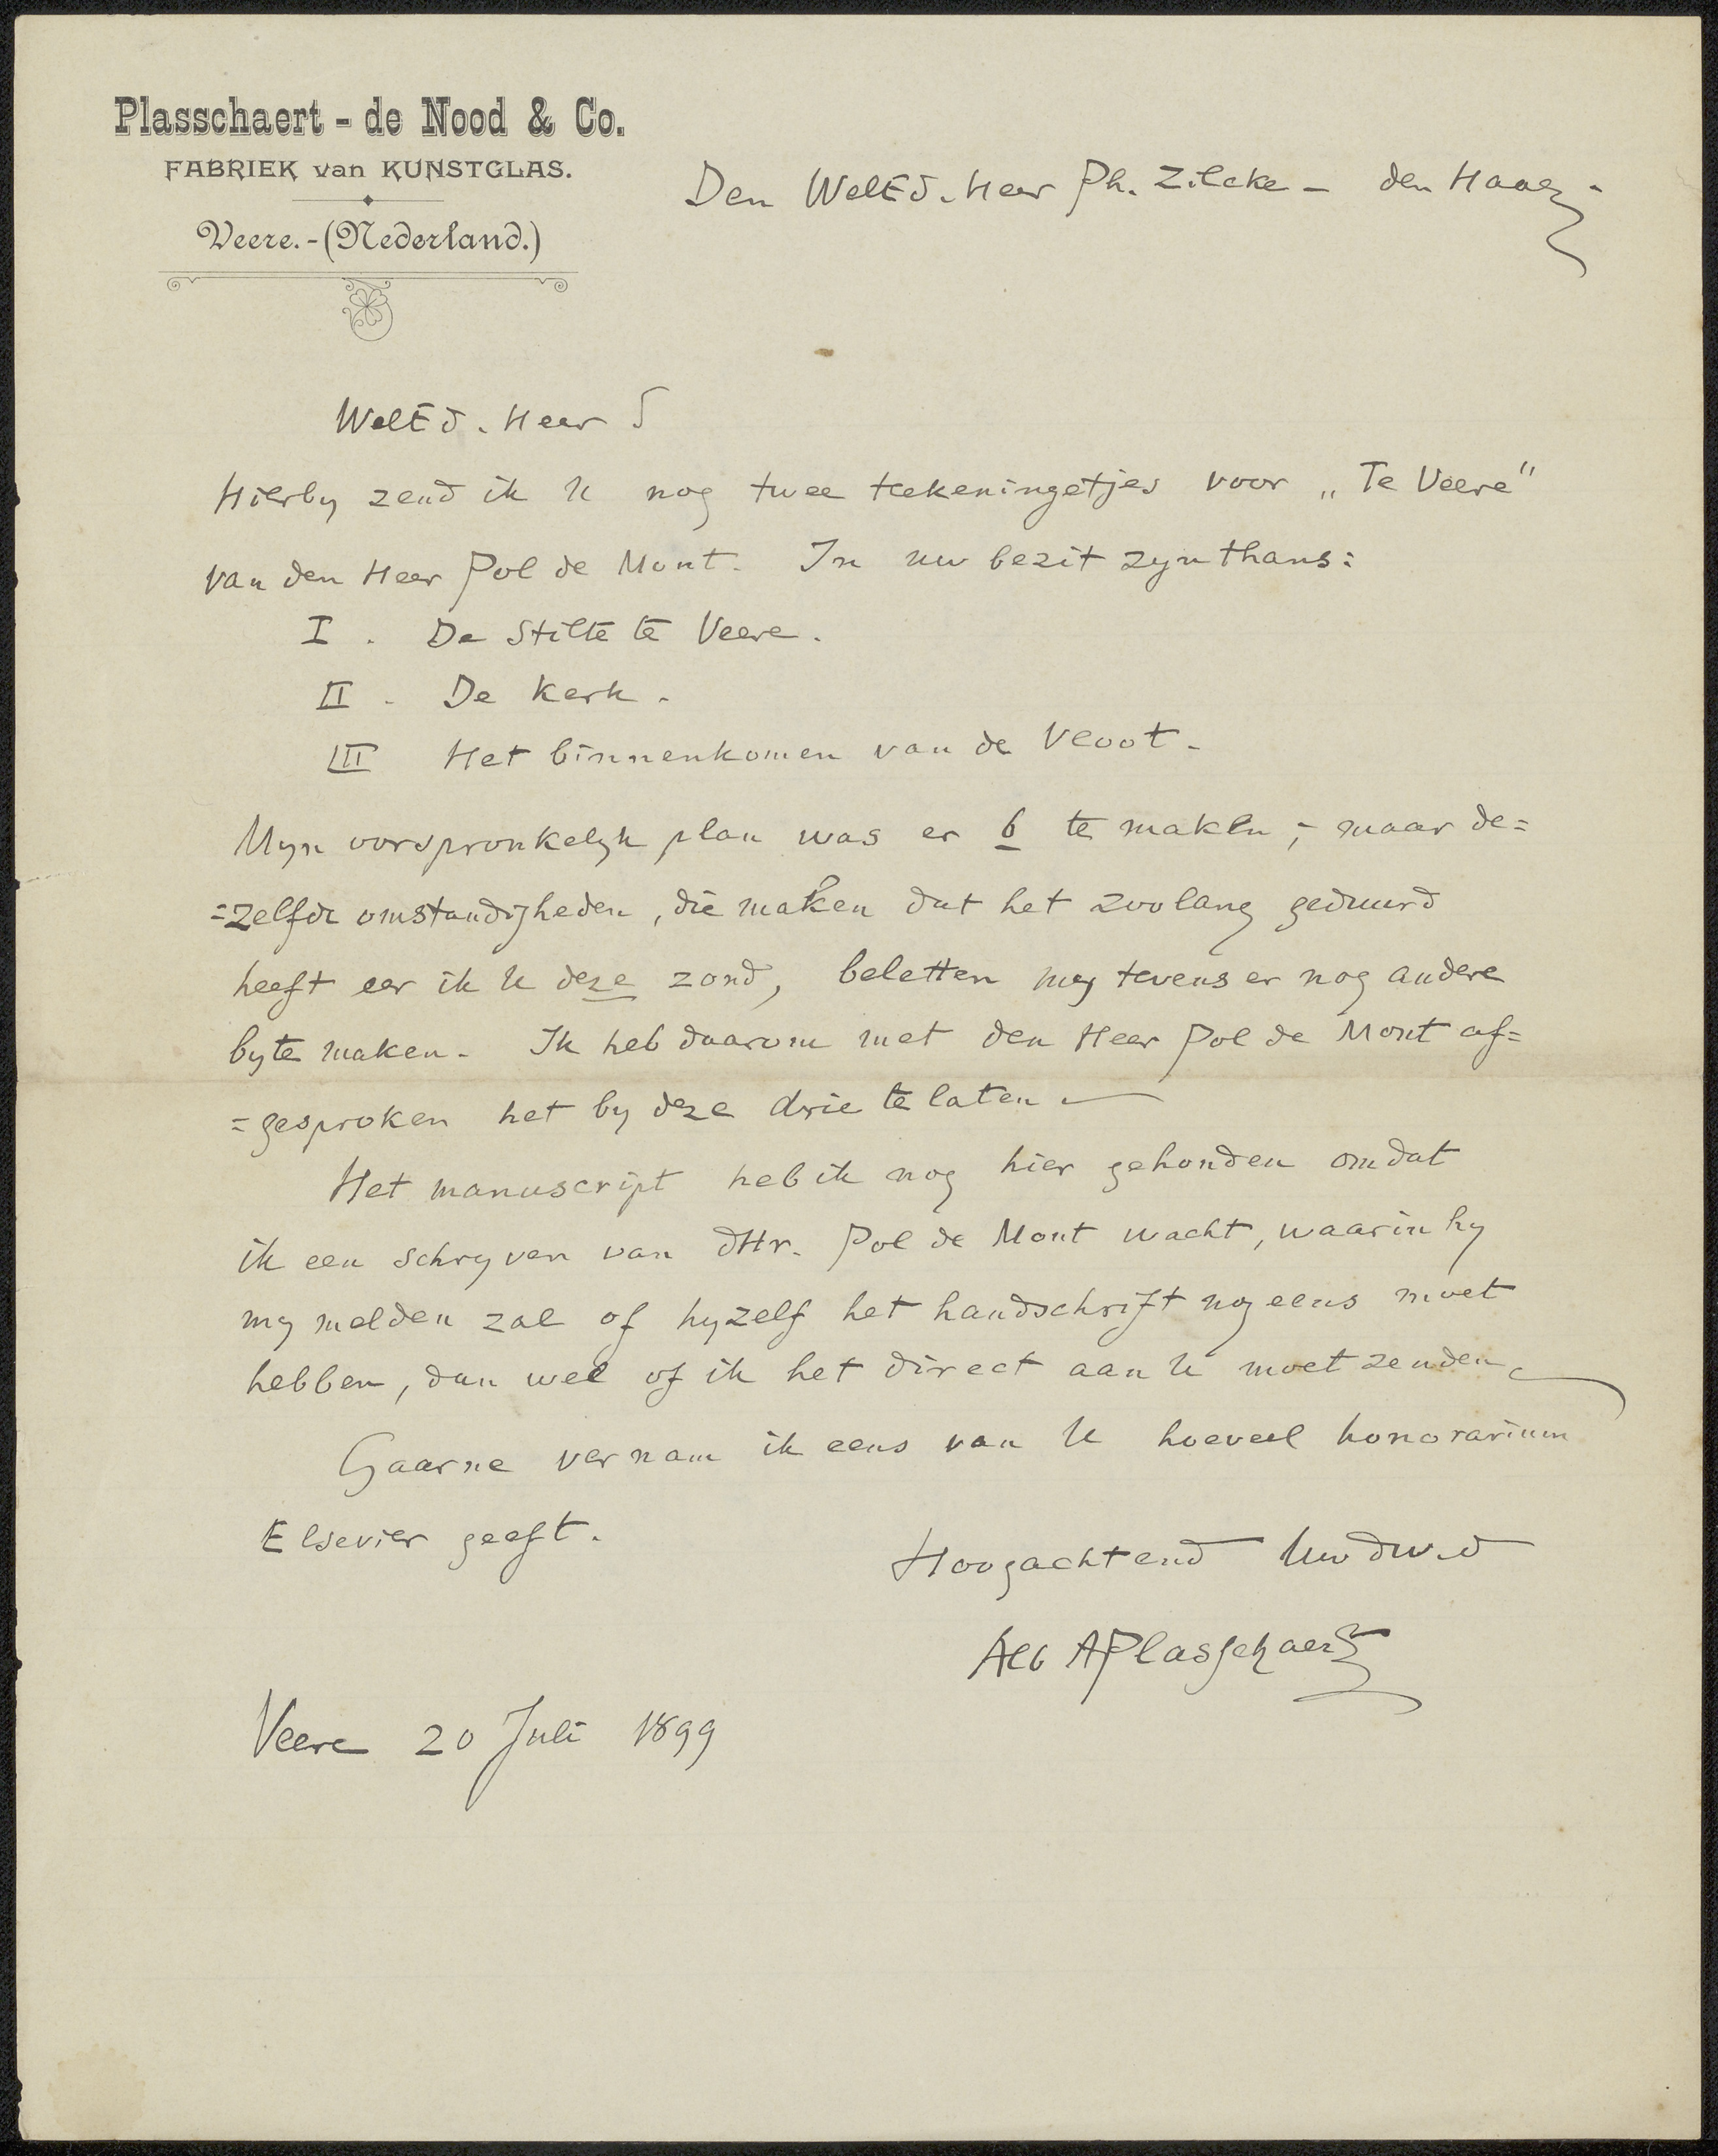 Plasschaert - de Nood & Co.
FABRIEK van KUNSTGLAS.
Veere. - (Nederland.)
Den WelEd. Heer Ph. Zilcke - den Haag -
WelEd. Heer
Hierby zend ik U nog twee teekeningetjes voor „Te Veere"
van den Heer Pol de Mont. In uw bezit zyn thans:
I. De Stilte te Veere.
II. De Kerk.
III Het binnenkomen van de Vloot.
Myn oorspronkelyk plan was er 6 te maken; - maar de=
=zelfde omstandigheden, die maken dat het zoolang geduurd
heeft eer ik U deze zond, beletten my tevens er nog andere
by te maken. Ik heb daarom met den Heer Pol de Mont af=
=gesproken het by deze drie te laten —
Het manuscript heb ik nog hier gehouden omdat
ik een schryven van dHr. Pol de Mont wacht, waarin hy
my melden zal of hyzelf het handschrift nog eens moet
hebben, dan wel of ik het direct aan U moet zenden
Gaarne vernam ik eens van U hoeveel honorarium
Elsevier geeft.
Hoogachtend Uw dw.d
Alb APlasschaert
Veere 20 Juli 1899